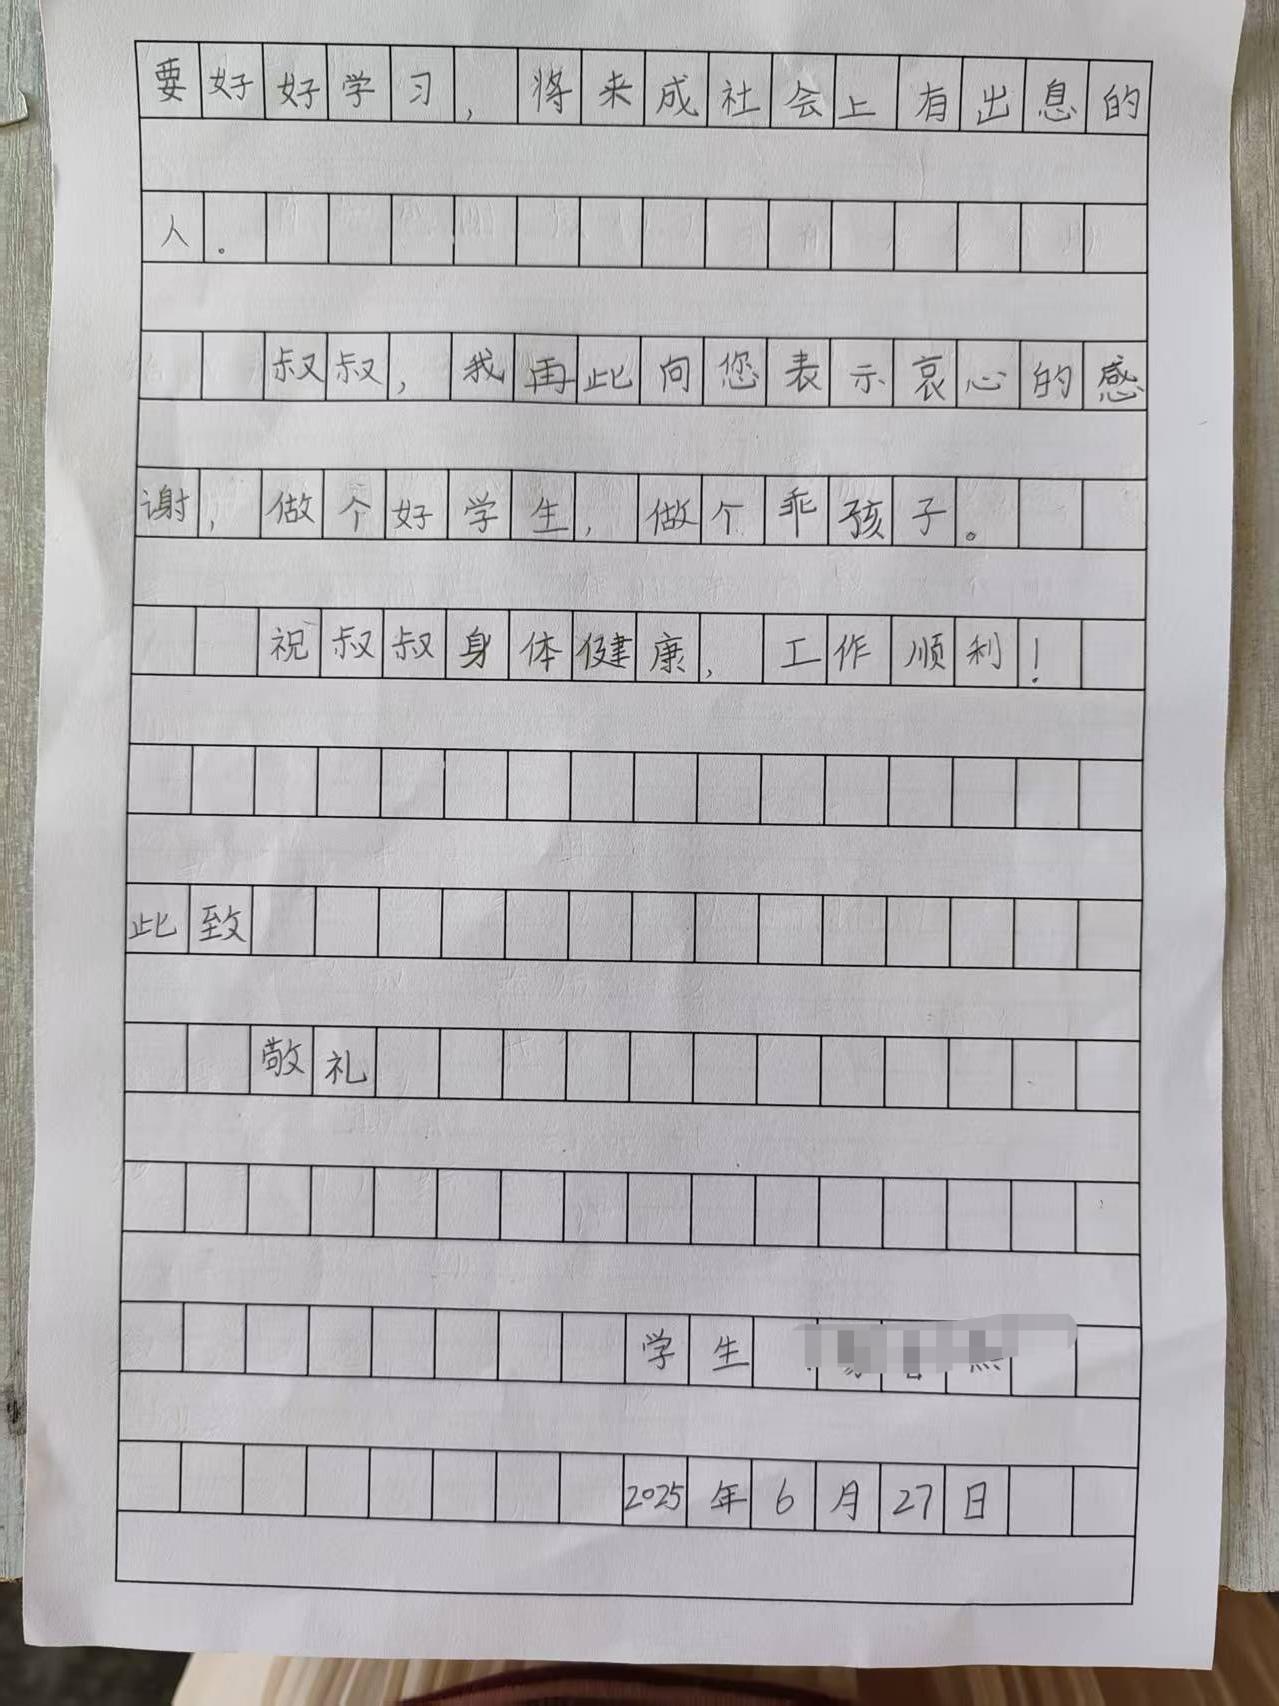 要好好学习，将来成社会上有出息的
人。
叔叔，我再此向您表示哀心的感
谢，做个好学生，做个乖孩子。
祝叔叔身体健康，工作顺利！
此致
敬礼
学生
2025年6月27日